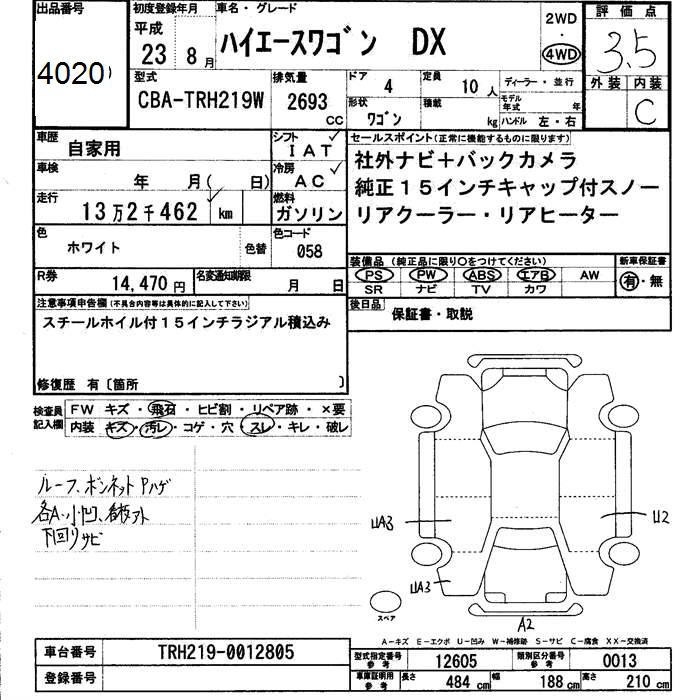 出品番号
4020
初度登録年月
平成
23 8 月
車名・グレード
ハイエースワゴン DX
2WD
・
4WD
評価点
3.5
外装 内装
C
型式
CBA-TRH219W
排気量
2693
CC
ドア 4
定員 10 人
ディーラー・並行
形状 ワゴン
積載 kg
モデル年式 年
ハンドル 左・右
車歴 自家用
シフト IAT
車検 年 月( 日)
冷房 AC
走行 13万2千462 km
燃料 ガソリン
色 ホワイト 色替
色コード 058
R券 14,470円
名変通知期限 月 日
セールスポイント(正常に機能するものに限ります)
社外ナビ+バックカメラ
純正15インチキャップ付スノー
リアクーラー・リアヒーター
装備品 (純正品に限り○をつけてください)
新車保証書
PS PW ABS エアB AW
SR ナビ TV カワ
有・無
後日品 保証書・取説
注意事項申告欄(不具合内容等は具体的に記入して下さい)
スチールホイル付15インチラジアル積込み
修復歴 有〔箇所 〕
検査員記入欄
FW キズ・飛石・ヒビ割・リペア跡・×要
内装 キズ・汚レ・コゲ・穴・スレ・キレ・破レ
ルーフ、ボンネットPハゲ
各A・小凹、
下回りサビ
UA3
U2
UA3
スペア
A2
A-キズ E-エクボ U-凹み W-補修跡 S-サビ C-腐食 XX-交換済
車台番号 TRH219-0012805
登録番号
型式指定番号参考 12605
類別区分番号参考 0013
車庫証明用参考 長さ 484 cm 幅 188 cm 高さ 210 cm